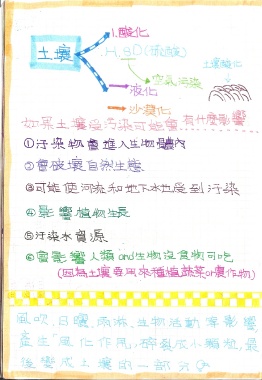 土壤
1.酸化
空氣污染
液化
沙漠化
如果土壤受污染可能會有什麼影響
①污染物會進入生物體內
②會破壞自然生態
③可能使河流和地下水也受到污染
④影響植物生長
⑤污染水資源
⑥會影響人類and生物沒食物可吃
(因為土壤要用來種植蔬菜or農作物)
風吹、日曬、雨淋、生物活動等影響
產生風化作用,碎裂成小顆粒,最
後變成土壤的一部分